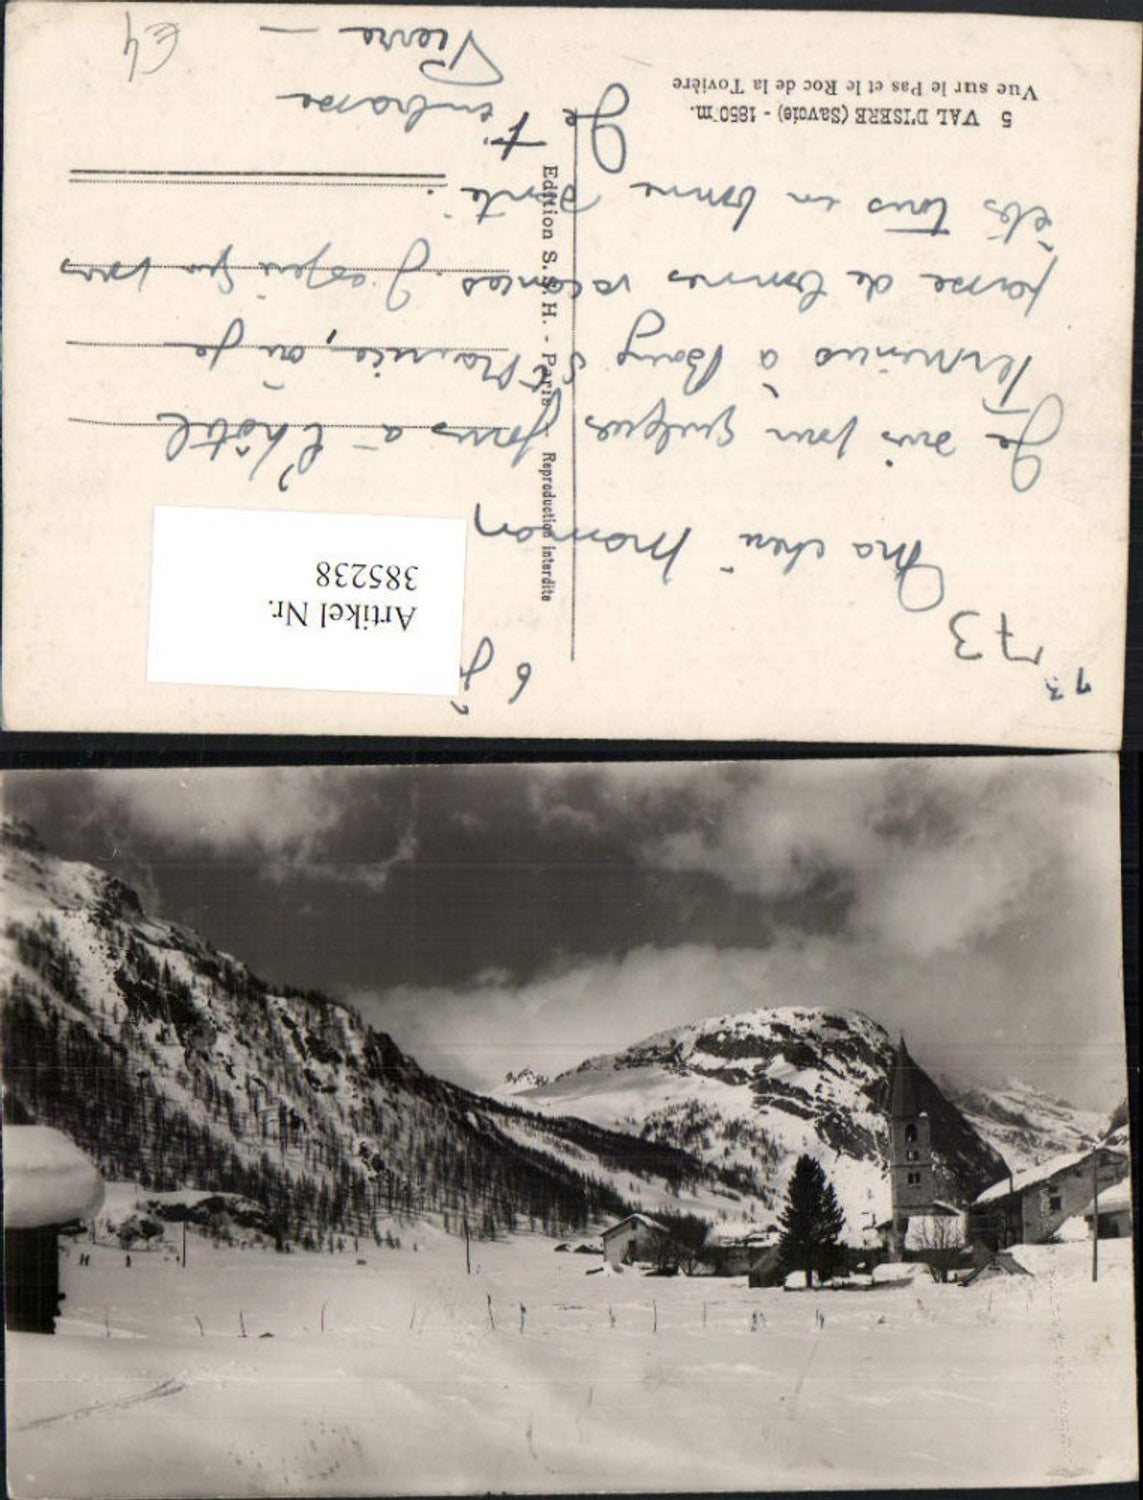 5 VAL D'ISERE (Savoie) - 1850 m.
Vue sur le Pas et le Roc de la Tovière
Edition S. S. H. - Paris
Reproduction interdite
Artikel Nr.
385238
73
6
Ma chère Maman
Je suis pour quelques jours à l'hôtel
Terminus à Bourg St Maurice, où je
passe de bonnes vacances. J'espère que vous
êtes tous en bonne santé.
Je t'embrasse
Pierre -